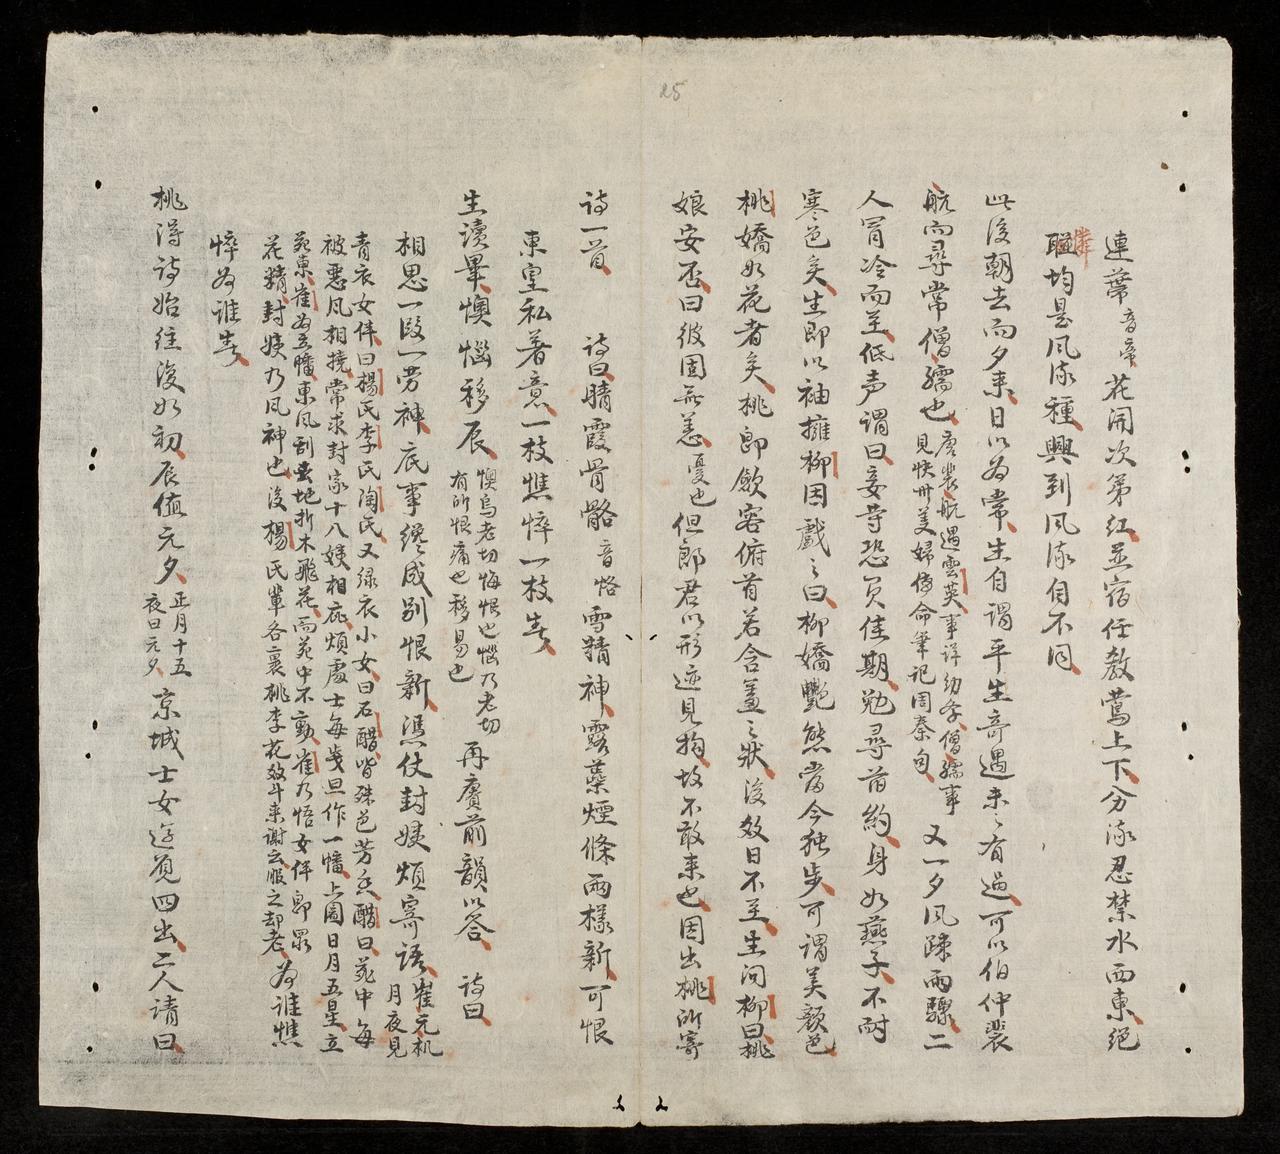 連蔕音帝花開次第紅並宿任教鶯上下分流忍禁水西東絕
憐均是風流種興到風流自不同
此後朝去而夕来日以為常生自謂平生奇遇未之有過可以伯仲裴
航而尋常僧孺也唐裴航遇雲英事詳幼学僧孺事見快州美婦傳命筆記周秦句又一夕風踈雨驟二
人冐冷而至低声謂曰妾等恐負佳期勉尋前約身如燕子不耐
寒色矣生即以袖擁柳因戲之曰柳嬌艷態當今独步可謂美顏色
桃嬌如花者矣桃即斂容俯首若含羞之狀後数日不至生问柳曰桃
娘安否曰彼固無恙憂也但郎君以形迹見拘故不敢来也因出桃所寄
詩一首 詩曰晴霞骨骼音恪雪精神露蘂煙條兩樣新可恨
東皇私著意一枝憔悴一枝春
生讀畢懊惱移辰懊烏老切悔恨也惱乃老切有所恨痛也移易也再賡前韻以答 詩曰
相思一段一劳神底事纔成别恨新憑仗封姨煩寄语崔元机月夜見
青衣女伴曰楊氏李氏陶氏又绿衣小女曰石醋皆殊色芳香醋曰苑中每
被惡風相撓常求封家十八姨相庇煩處士每歲旦作一幡上圖日月五星立
苑東崔為立幡東風刮地折木飛花而苑中不動崔乃悟女伴即眾
花精封姨乃風神也後楊氏輩各裹桃李花数斗来謝云服之却老為誰憔
悴為誰春
桃得詩始往復如初辰值元夕正月十五夜曰元夕京城士女遊覓四出二人請曰
25